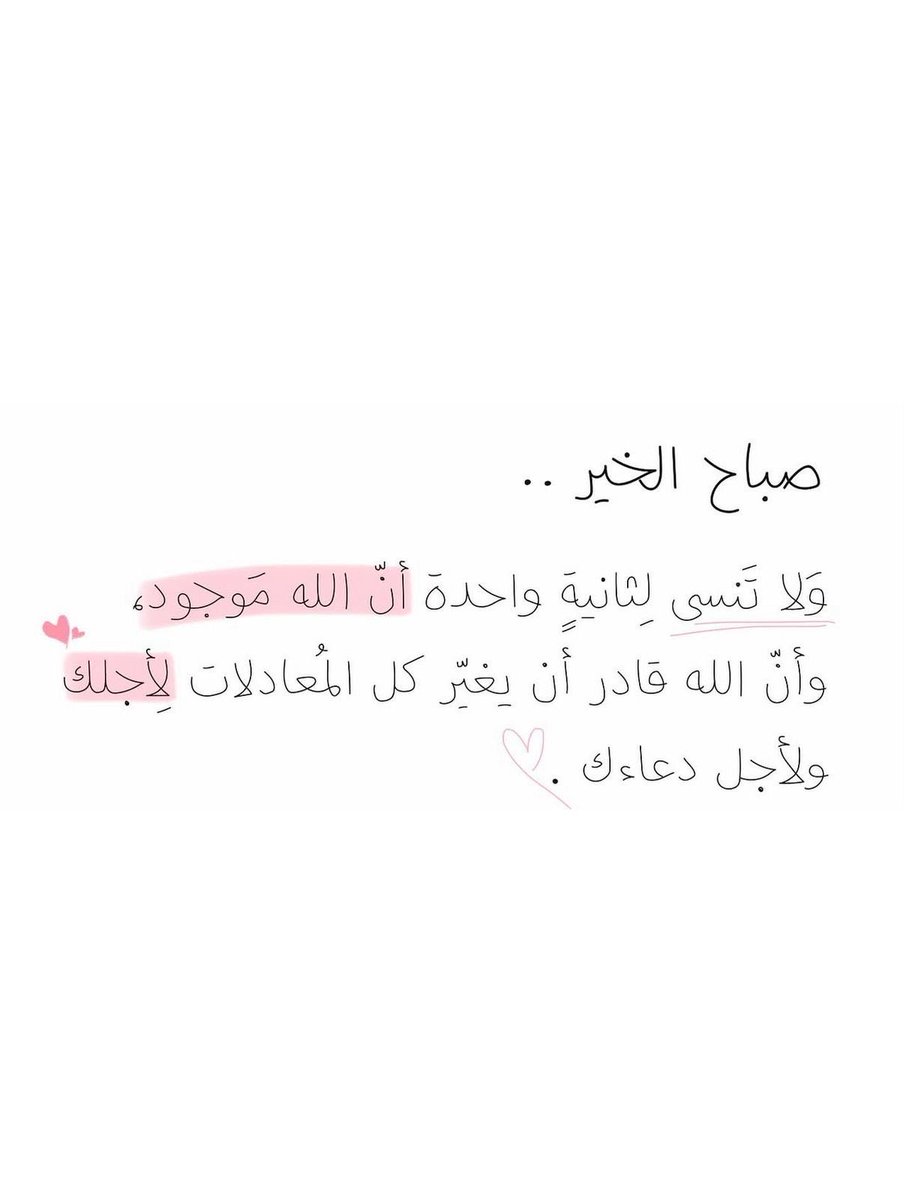 صباح الخير ..
وَلا تَنسى لِثانيةٍ واحدة أنّ الله مَوجود،
وأنّ الله قادر أن يغيّر كل المُعادلات لِأجلك
ولأجل دعاءك .